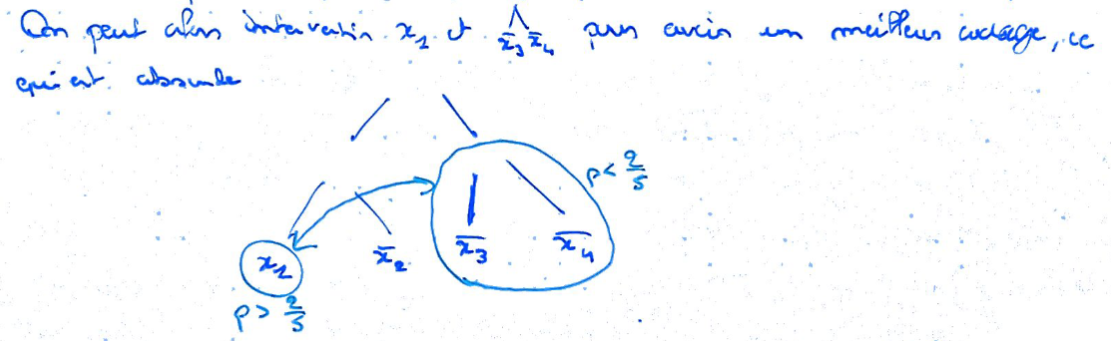 On peut alors intervertir x₁ et x̄₃ x̄₄ pour avoir un meilleur codage, ce
qui est absurde
p < 2/5
x₁ x̄₂ x̄₃ x̄₄
p > 2/5